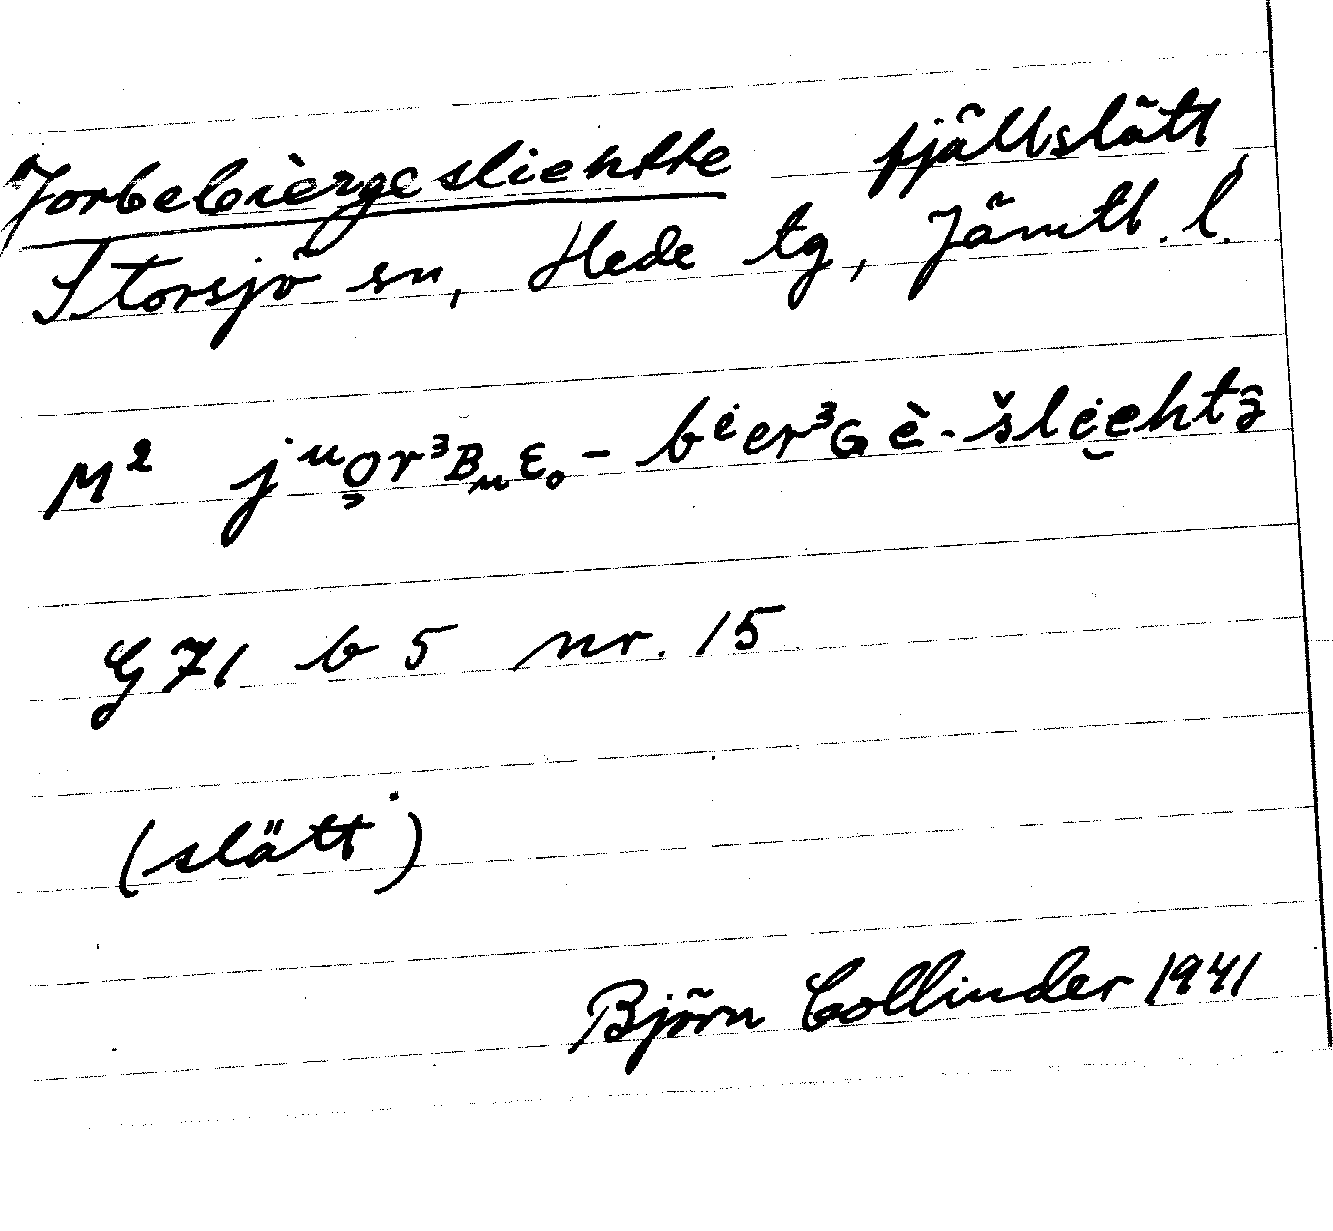 Jorbebiergesliehtte fjällslått,
Storsjö sn, Hede tg, Jämtl. l.
M² jᵘo̧r³Bᵤɛ₀ - bᵉ̇er³Gè - šlie̮htə̑
G 71 b 5 nr. 15
(slätt)
Björn Collinder 1941